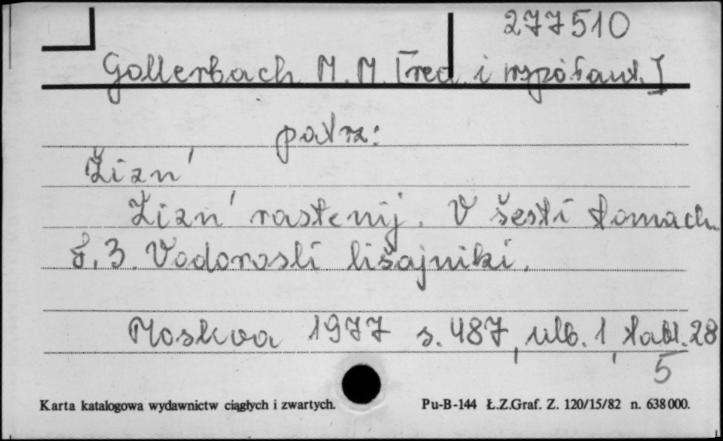 277510
Gollerbach M. M. [red. i współaut.]
patrz:
Žizn'
Žizn' rastenij. V šesti tomach.
t. 3. Vodorosli lišajniki.
Moskva 1977 s. 487, nlb. 1, tabl. 28
5
Karta katalogowa wydawnictw ciągłych i zwartych. Pu-B-144 Ł.Z.Graf. Z. 120/15/82 n. 638000.